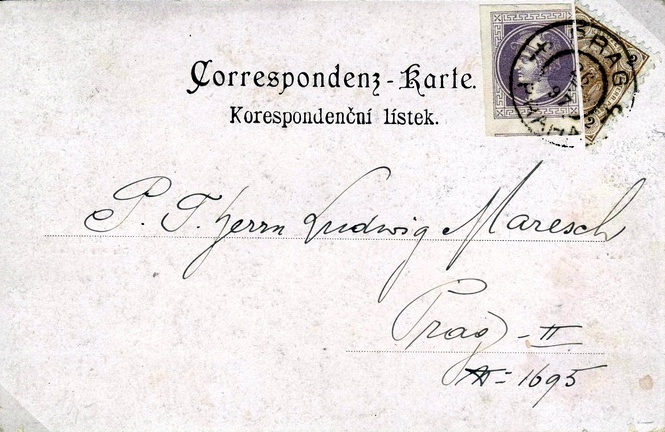 Correspondenz-Karte.
Korespondenční lístek.
PRAG
PRAHA
97
2
2
P. T. Herrn Ludwig Maresch
Prag - II
1695